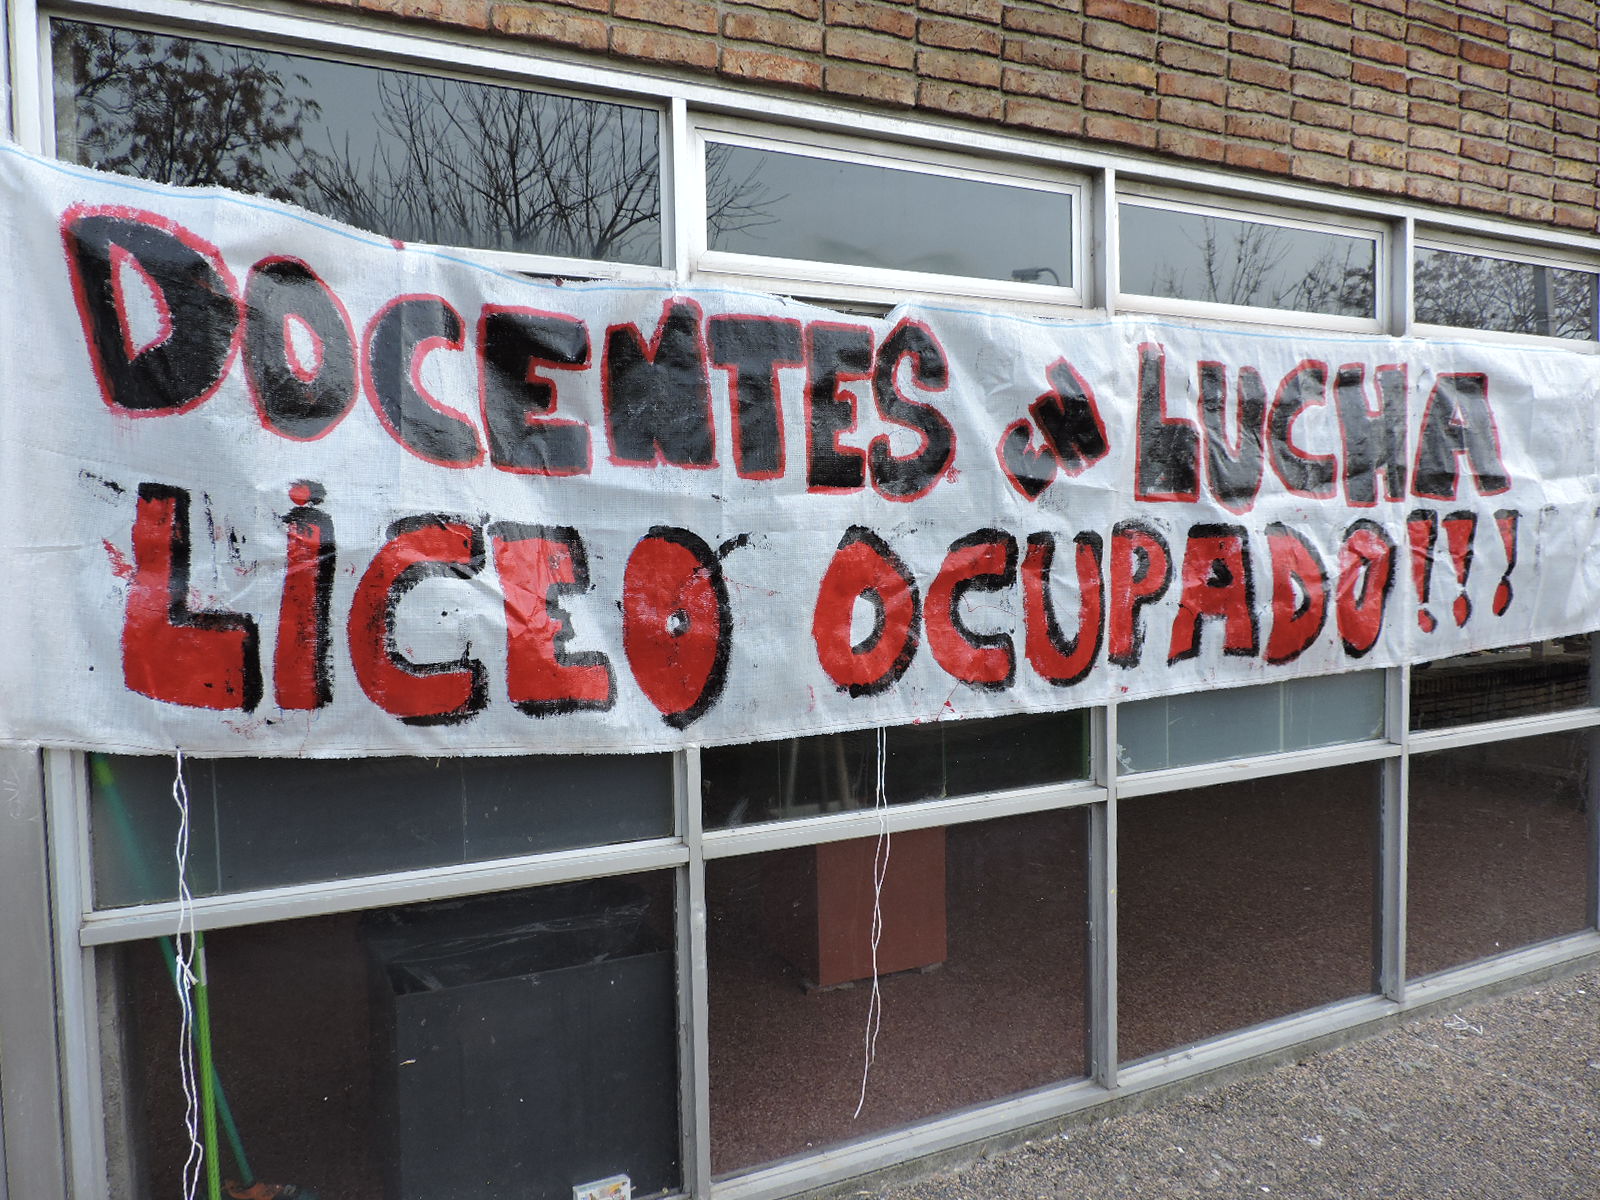 DOCENTES EN LUCHA
LiCEO OCUPADO!!!